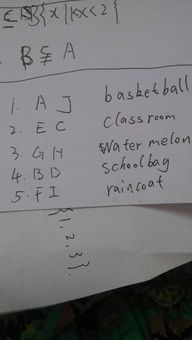 B{x|1<x<2}
B⊊A
1. A J basketball
2. E C classroom
3. G H Water melon
4. B D schoolbag
5. F I raincoat
{1.2.3}.